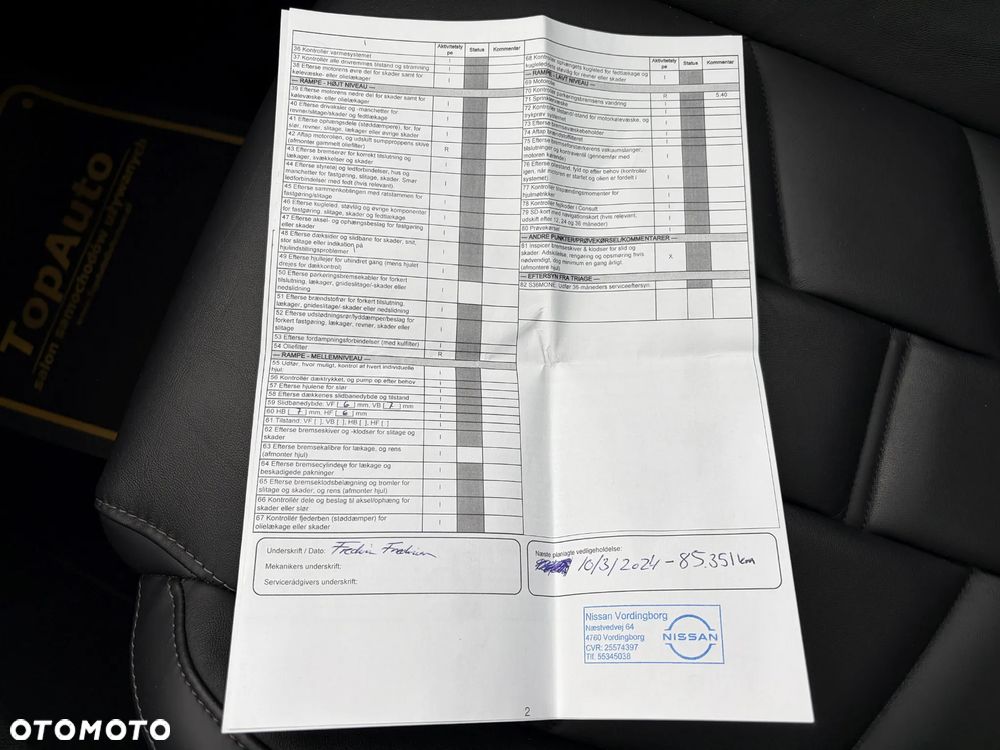 Aktivitetsty
pe
Status
Kommentar
36 Kontrollér varmesystemet
I
37 Kontrollér alle drivremmes tilstand og stramning
I
38 Efterse motorens øvre del for skader samt for
kølevæske- eller olielækager
I
--- RAMPE - HØJT NIVEAU ---
39 Efterse motorens nedre del for skader samt for
kølevæske- eller olielækager
I
40 Efterse drivaksler og -manchetter for
revner/slitage/skader og fedtlækage
I
41 Efterse ophængsdele (støddæmpere), for, for
slør, revner, slitage, lækager eller øvrige skader
I
42 Aftap motorolien, og udskift sumpproppens skive
(afmonter gammelt oliefilter)
R
43 Efterse bremserør for korrekt tilslutning og
lækager, svækkelser og skader
I
44 Efterse styretøj og ledforbindelser, hus og
manchetter for fastgøring, slitage, skader. Smør
ledforbindelser med fedt (hvis relevant).
I
45 Efterse sammenkoblingen med ratstammen for
fastgøring/slitage
I
46 Efterse kugleled, støvlåg og øvrige komponenter
for fastgøring, slitage, skader og fedtlækage
I
47 Efterse aksel- og ophængsbeslag for fastgøring
eller skader
I
48 Efterse dæksider og slidbane for skader, snit,
stor slitage eller indikation på
hjulindstillingsproblemer
I
49 Efterse hjullejer for uhindret gang (mens hjulet
drejes for dækkontrol)
I
50 Efterse parkeringsbremsekabler for forkert
tilslutning, lækager, gnideslitage/-skader eller
nedslidning
I
51 Efterse brændstofrør for forkert tilslutning,
lækager, gnideslitage/-skader eller nedslidning
I
52 Efterse udstødningsrør/lyddæmper/beslag for
forkert fastgøring, lækager, revner, skader eller
slitage
I
53 Efterse fordampningsforbindelser (med kulfilter)
I
54 Oliefilter
R
--- RAMPE - MELLEMNIVEAU ---
55 Udfør, hvor muligt, kontrol af hvert individuelle
hjul:
I
56 Kontrollér dæktrykket, og pump op efter behov
I
57 Efterse hjulene for slør
I
58 Efterse dækkenes slidbanedybde og tilstand
I
59 Slidbanedybde: VF [ 6 ] mm, VB [ 7 ] mm
I
60 HB [ 7 ] mm, HF [ 6 ] mm
I
61 Tilstand: VF [ ], VB [ ], HB [ ], HF [ ]
I
62 Efterse bremseskiver og -klodser for slitage og
skader
I
63 Efterse bremsekalibre for lækage, og rens
(afmonter hjul)
I
64 Efterse bremsecylindere for lækage og
beskadigede pakninger
I
65 Efterse bremseklodsbelægning og tromler for
slitage og skader, og rens (afmonter hjul)
I
66 Kontrollér dele og beslag til aksel/ophæng for
skader eller slør
I
67 Kontrollér fjederben (støddæmper) for
olielækage eller skader
I
Aktivitetsty
pe
Status
Kommentar
68 Kontrollér ophængets kugleled for fedtlækage og
kugleleddets støvlåg for revner eller skader
I
--- RAMPE - LAVT NIVEAU ---
69 Motorolie
R
5.40
70 Kontrollér parkeringsbremsens vandring
I
71 Sprinklervæske
I
72 Kontrollér niveau/stand for motorkølevæske, og
trykprøv systemet
I
73 Efterse bremsevæskebeholder
I
74 Aftap brændstoffilteret
I
75 Efterse bremseforstærkerens vakuumslanger,
tilslutninger og kontraventil (gennemfør med
motoren kørende)
I
76 Efterse oliestand, fyld op efter behov (kontrollér
igen, når motoren er startet og olien er fordelt i
systemet)
I
77 Kontrollér tilspændingsmomenter for
hjulmøtrikker
I
78 Kontrollér fejlkoder i Consult
I
79 SD-kort med navigationskort (hvis relevant,
udskift efter 12, 24 og 36 måneder)
I
80 Prøvekørsel
I
--- ANDRE PUNKTER/PRØVEKØRSEL/KOMMENTARER ---
81 Inspicer bremseskiver & klodser for slid og
skader. Adskillelse, rengøring og opsmøring hvis
nødvendigt, dog minimum en gang årligt.
(afmontere hjul)
X
--- EFTERSYN FRA TRIAGE ---
82 S36MONE. Udfør 36-måneders serviceeftersyn.
Underskrift / Dato:
Mekanikers underskrift:
Servicerådgivers underskrift:
Næste planlagte vedligeholdelse:
10/3/2024 - 85.351 km
Nissan Vordingborg
Næstvedvej 64
4760 Vordingborg
CVR: 25574397
Tlf. 55345038
NISSAN
2
TOPAUTO
OTOMOTO